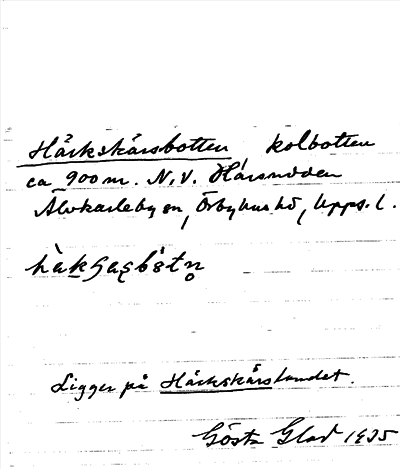 Hårkskärsbotten kolbotten
ca 900 m. N.V. Hårsudden
Älvkarleby sn, Örbyhus hd, Upps. l.
Ligger på Hårkskärslandet.
Gösta Glad 1935